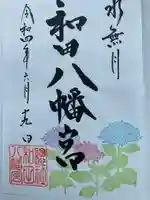 水無月
和田八幡宮
令和四年六月吉日